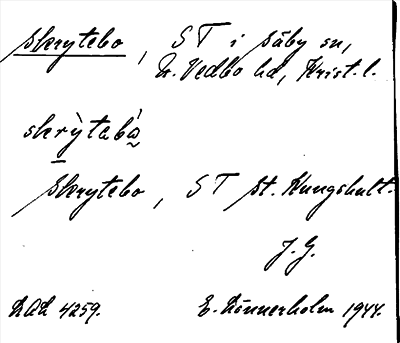 Skrytebo, ST i Säby sn,
N. Vedbo hd, Krist. l.
skrỳtebá̰
Skrytebo, ST St. Kungshult.
J. G.
LAL 4259. E. Lönnerholm 1944.